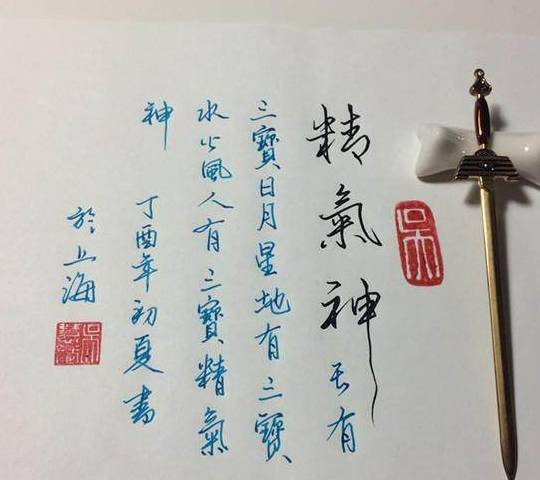 精氣神天有
三寶日月星地有三寶
水火風人有三寶精氣
神 丁酉年初夏書
於上海